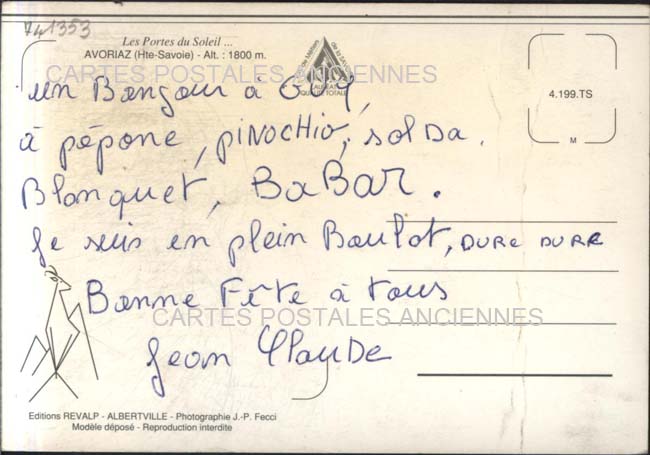 741353
Les Portes du Soleil ...
AVORIAZ (Hte-Savoie) - Alt. : 1800 m.
CARTES POSTALES ANCIENNES
4.199.TS
M
un Bonjour à
à pépone, piNOCHiO, SOLDA.
Blanquet, BaBAR.
Je suis en plein Boulot, DURE DURE
Bonne Fête à tous
CARTES POSTALES ANCIENNES
Jean Claude
Editions REVALP - ALBERTVILLE - Photographie J.-P. Fecci
Modèle déposé - Reproduction interdite